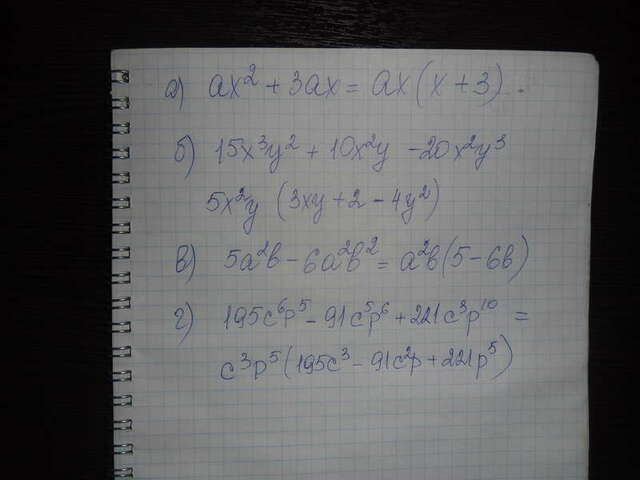 а) ax² + 3ax = ax(x + 3).
б) 15x³y² + 10x²y - 20x²y³
5x²y (3xy + 2 - 4y²)
в) 5a²b - 6a²b² = a²b(5 - 6b)
г) 195c⁶p⁵ - 91c⁵p⁶ + 221c³p¹⁰ =
c³p⁵(195c³ - 91c²p + 221p⁵)